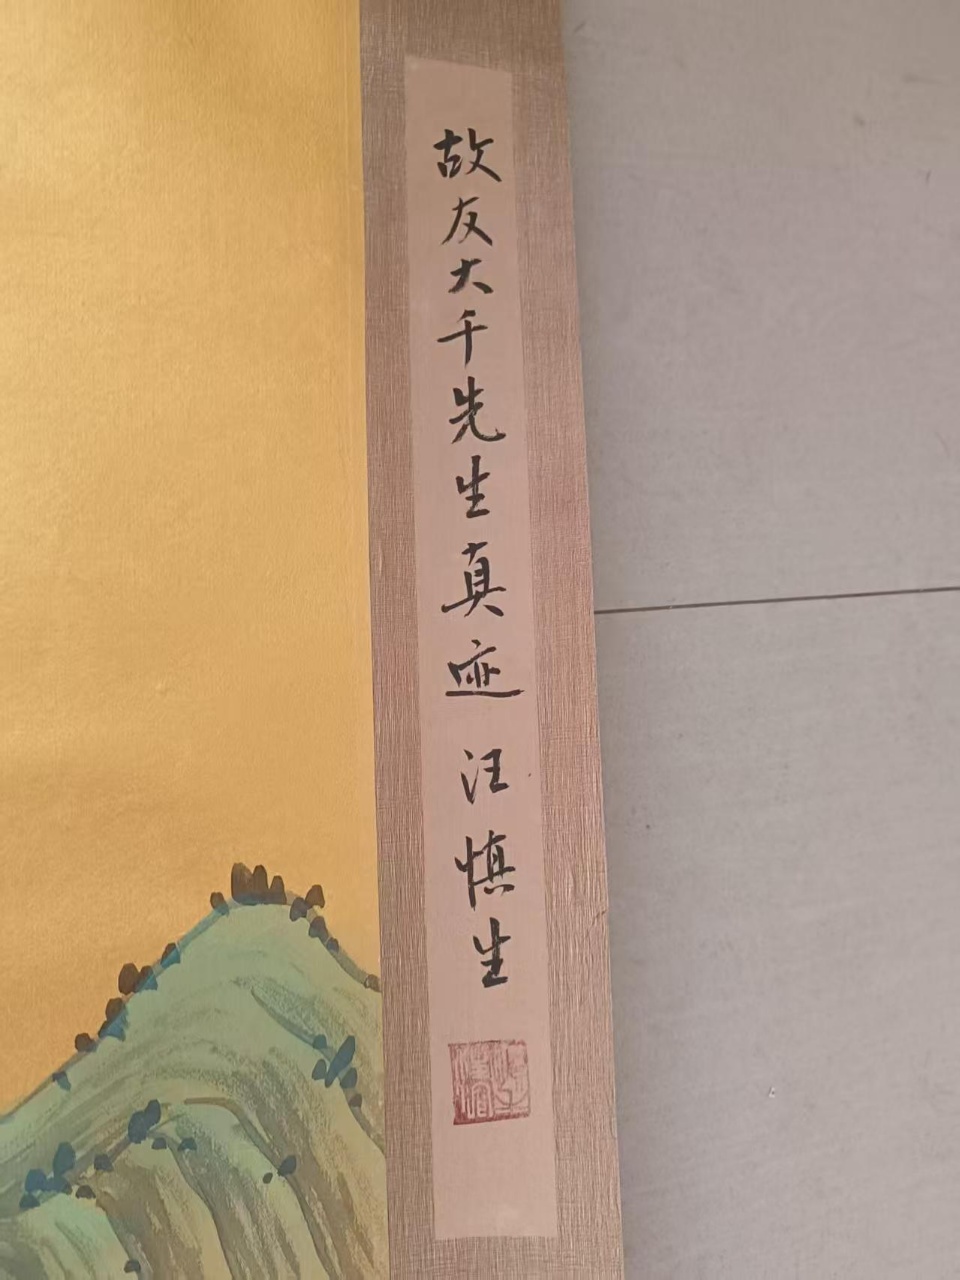 故友大千先生真迹 汪慎生